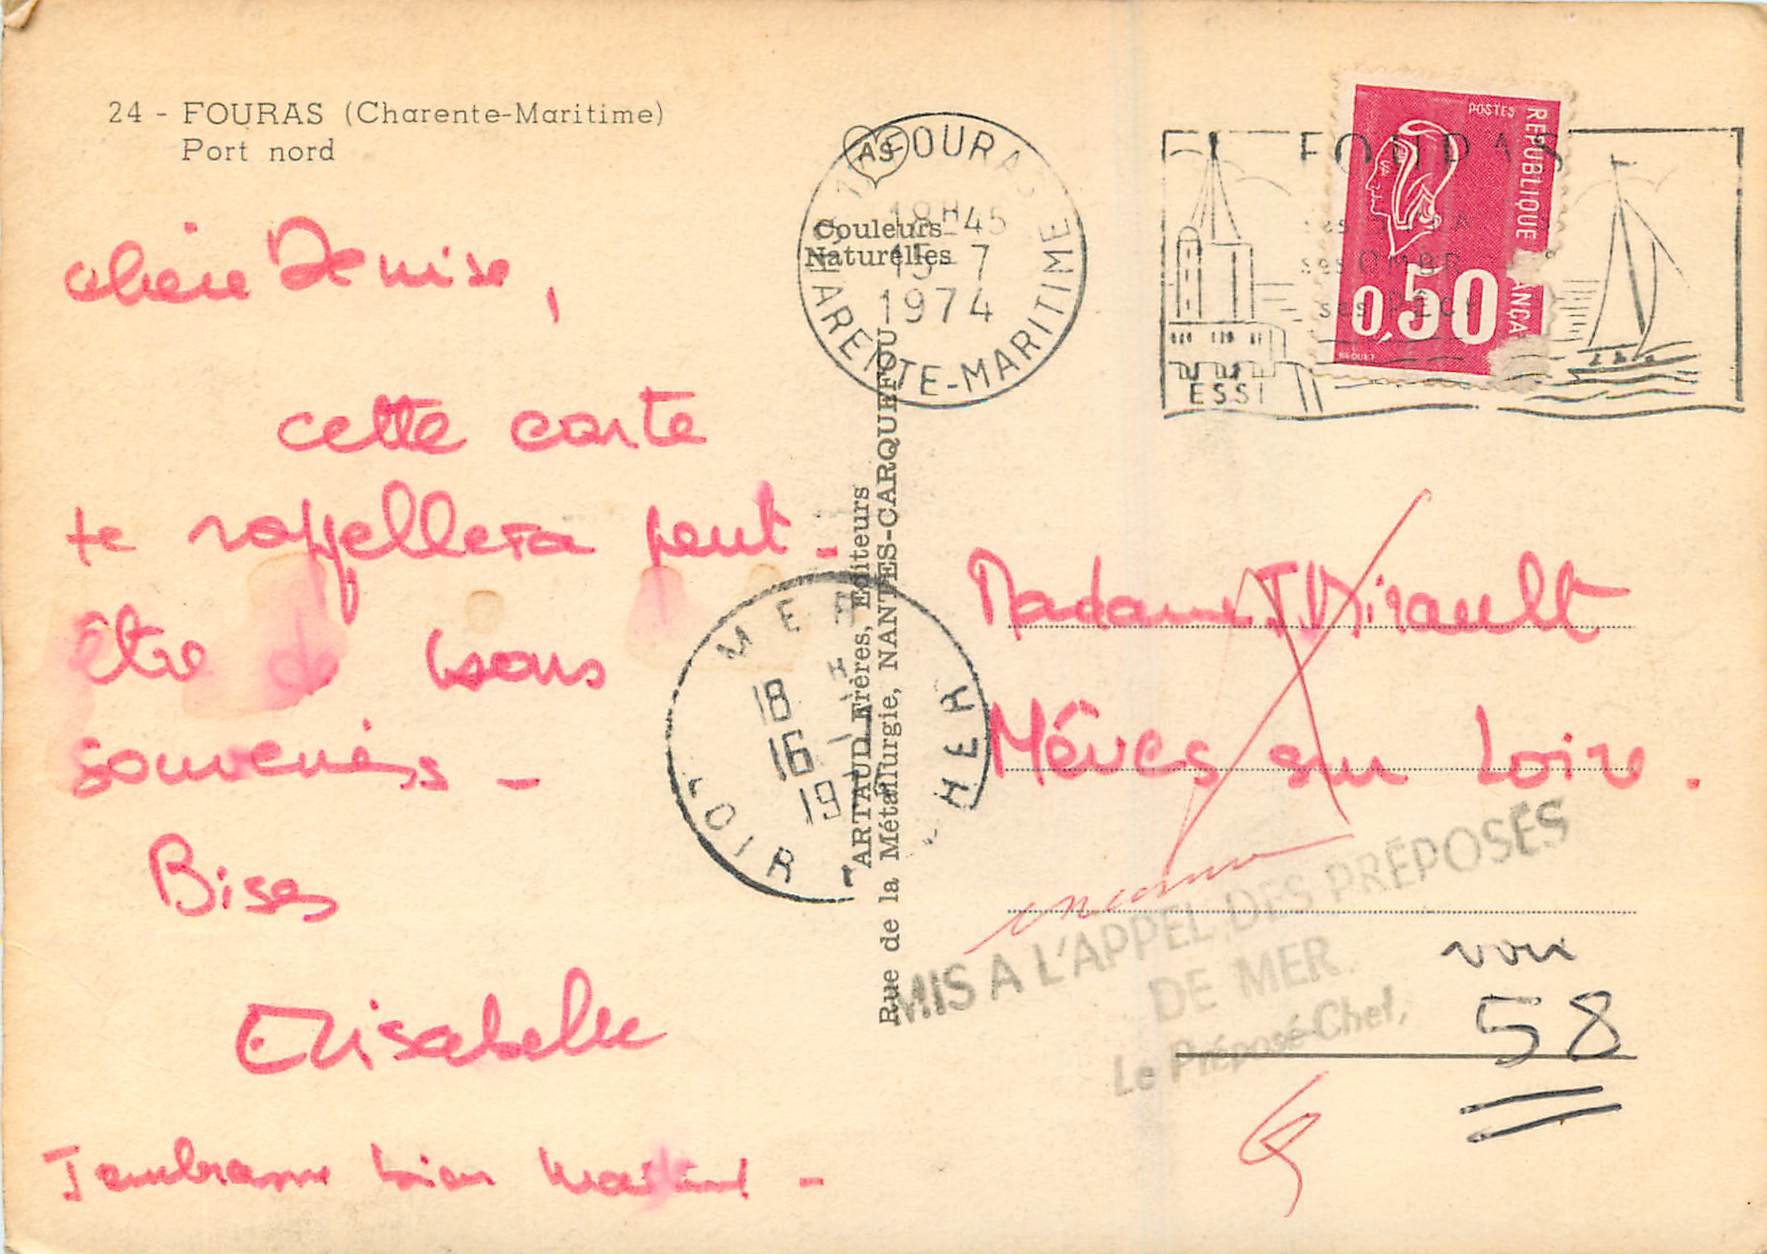 24 - FOURAS (Charente-Maritime)
Port nord
AS
Couleurs
Naturelles
chère Denise,
cette carte
te rappellera peut-
être de bons
souvenirs -
Bises
Elisabelle
J'embrasse bien Martine -
17 FOURAS
18H45
15-7
1974
CHARENTE-MARITIME
FOURAS
ses
ses
ses
POSTES
REPUBLIQUE
0,50
ARTAUD Frères, Editeurs
Rue de la Métallurgie, NANTES-CARQUEFOU
MER
18 H
16
19
LOIR
CHER
Madame J Mirault
Mêves sur Loire.
inconnu
MIS A L'APPEL DES PRÉPOSÉS
DE MER
Le Préposé-Chef,
voir
58